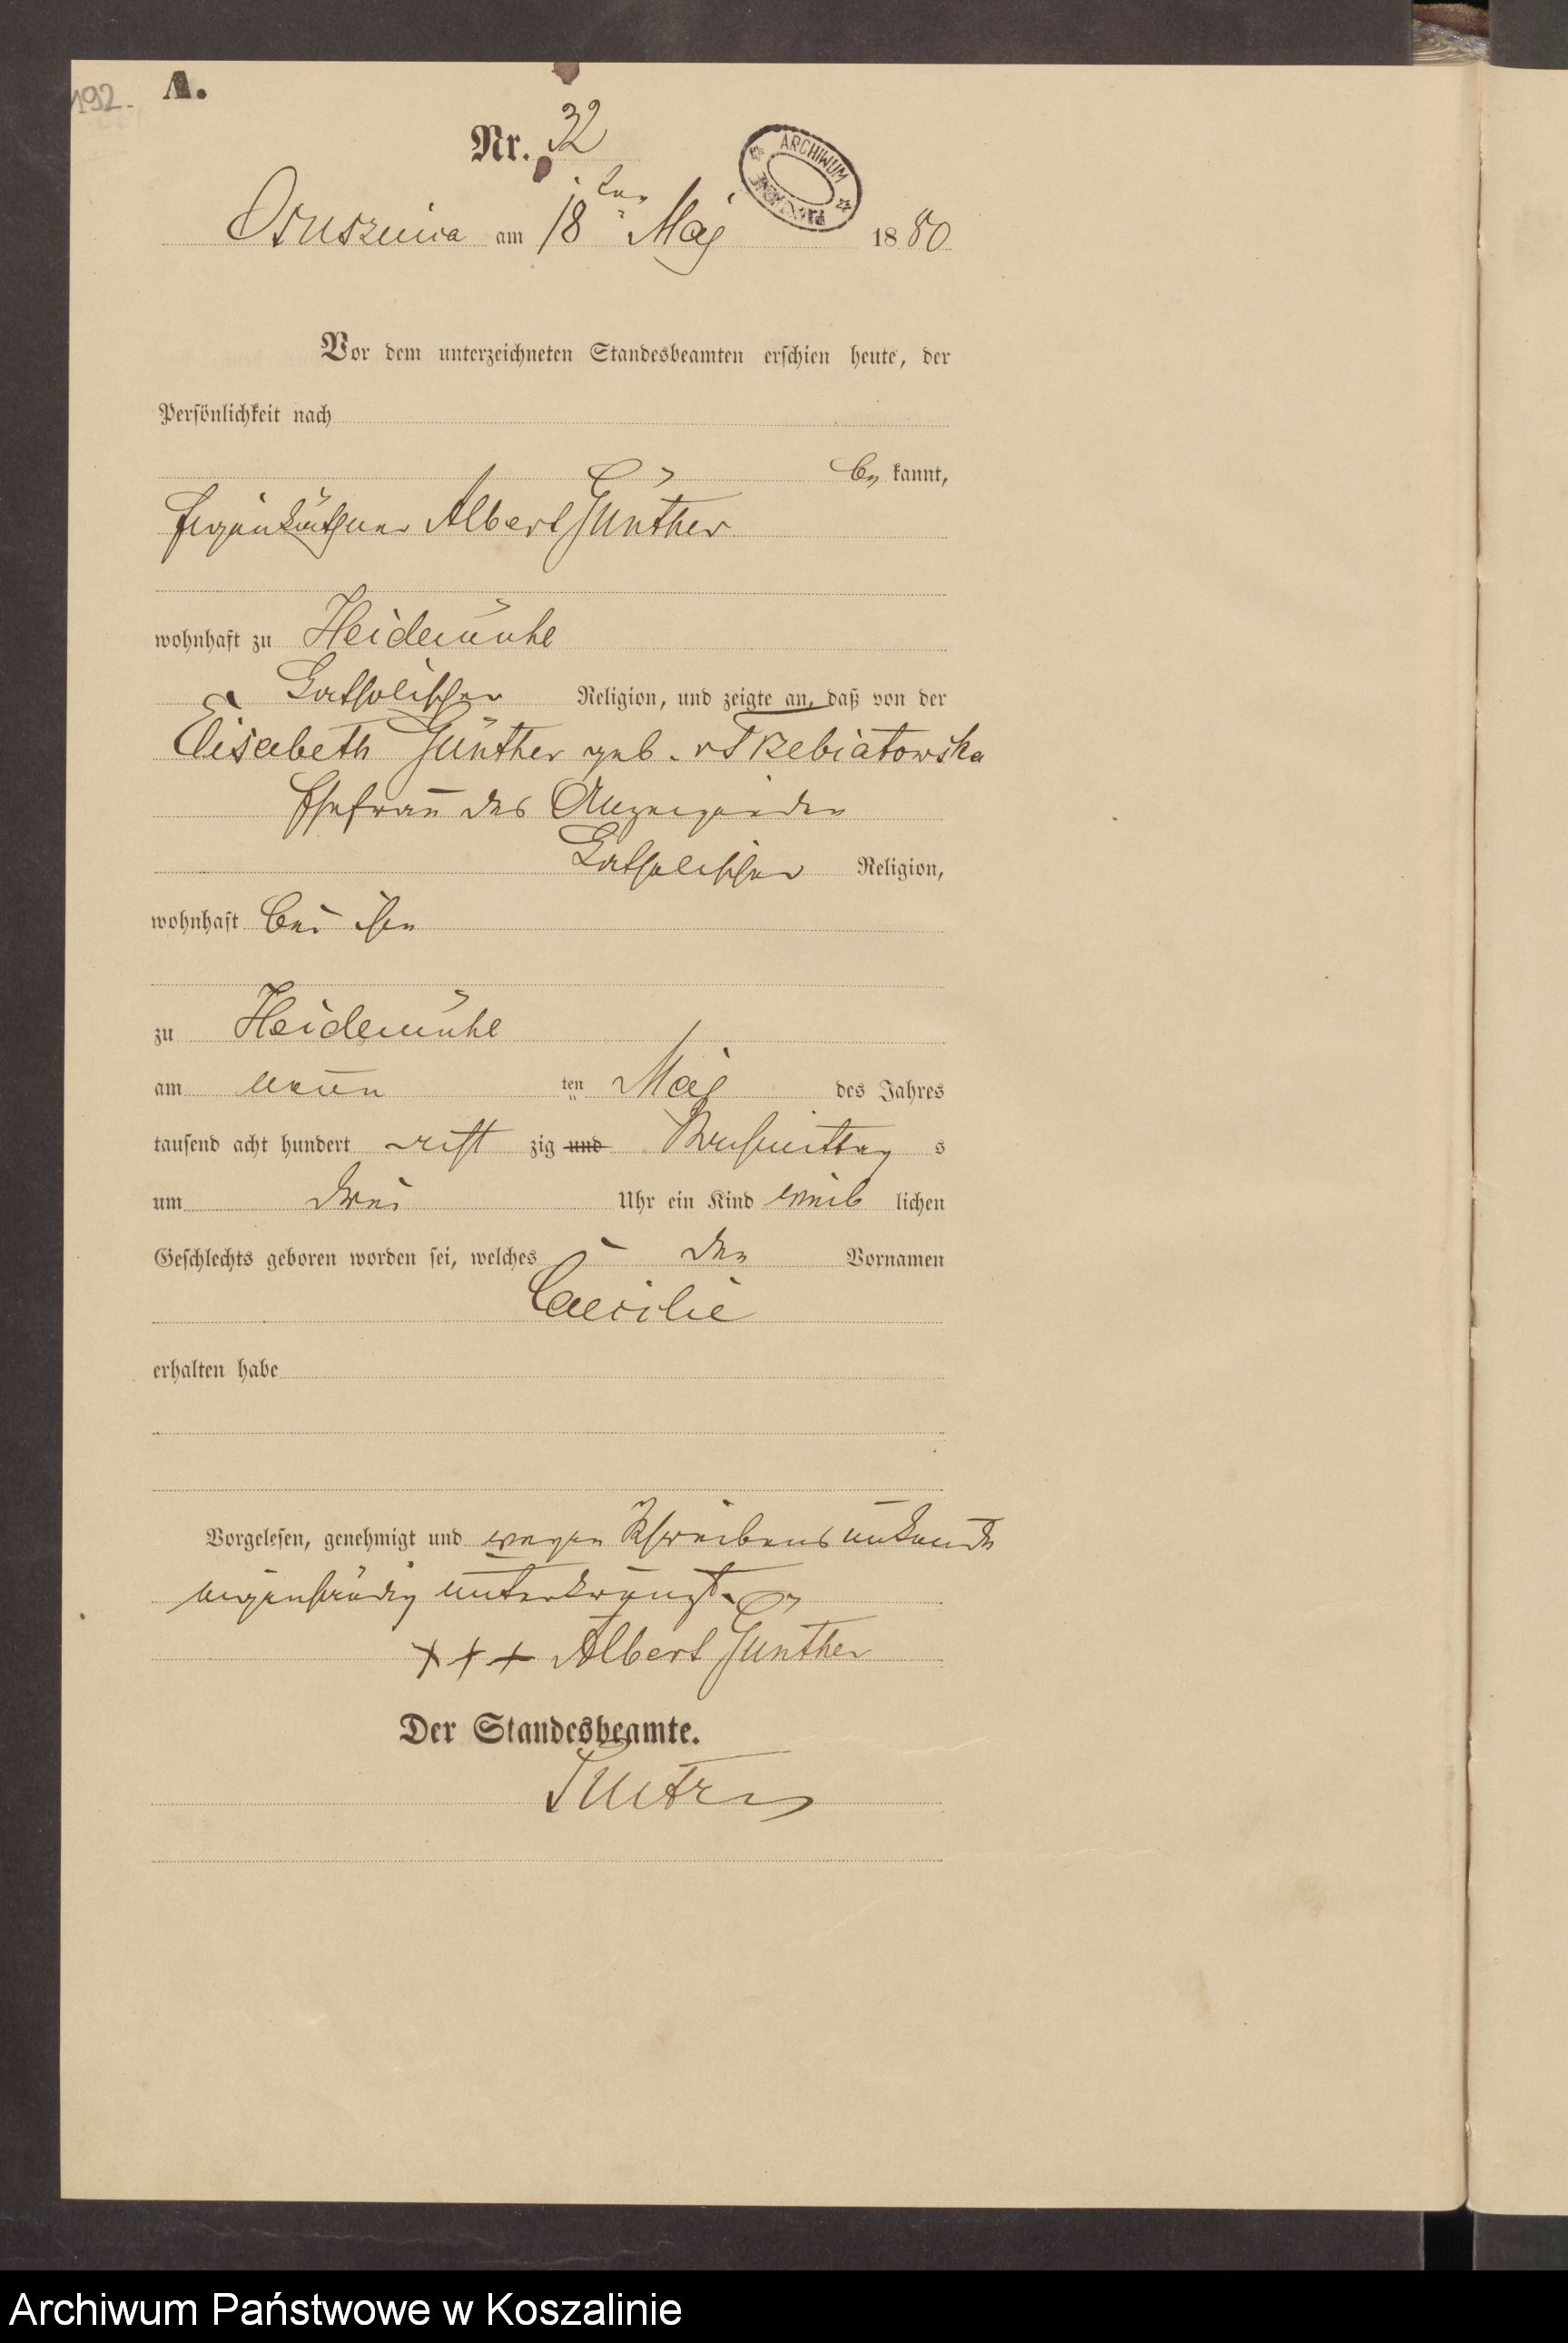 192.
A.
Nr. 32
ARCHIWUM PAŃSTWOWE
Osuszniza am 18ten Maj 1880
Vor dem unterzeichneten Standesbeamten erschien heute, der
Persönlichkeit nach
be kannt,
Eigenkäthner Albert Günther
wohnhaft zu Heidemühl
katholischer Religion, und zeigte an, daß von der
Elisabeth Günther geb. v Trzebiatowska
Ehefrau des Anzeigenden
katholischer Religion,
wohnhaft bei ihm
zu Heidemühl
am neun ten Maj des Jahres
tausend acht hundert acht zig und Nachmittag s
um drei Uhr ein Kind weib lichen
Geschlechts geboren worden sei, welches den Vornamen
Caecilie
erhalten habe
Vorgelesen, genehmigt und wegen Schreibensunkunde
eigenhändig unterkreuzt.
+++ Albert Günther
Der Standesbeamte.
Archiwum Państwowe w Koszalinie